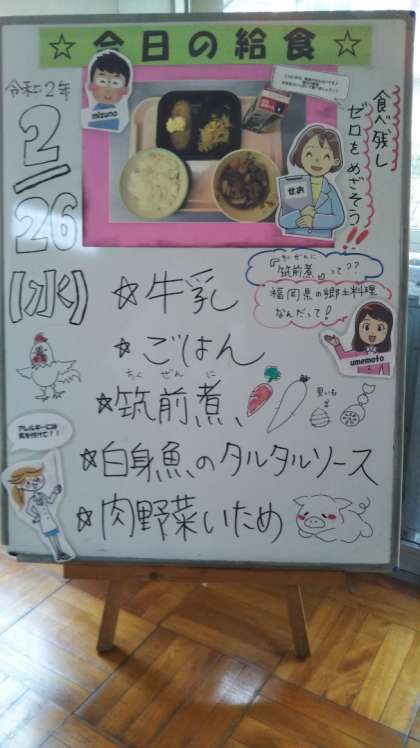 ☆今日の給食☆
令和2年
2/26
(水)
mizuno
せお
食べ残し
ゼロをめざそう!!
ちくぜんに
『筑前煮』って??
福岡県の郷土料理
なんだって!
umemoto
☆牛乳
☆ごはん
ちくぜんに
☆筑前煮
里いも
☆白身魚のタルタルソース
☆肉野菜いため
アレルギーには
気を付けて!!